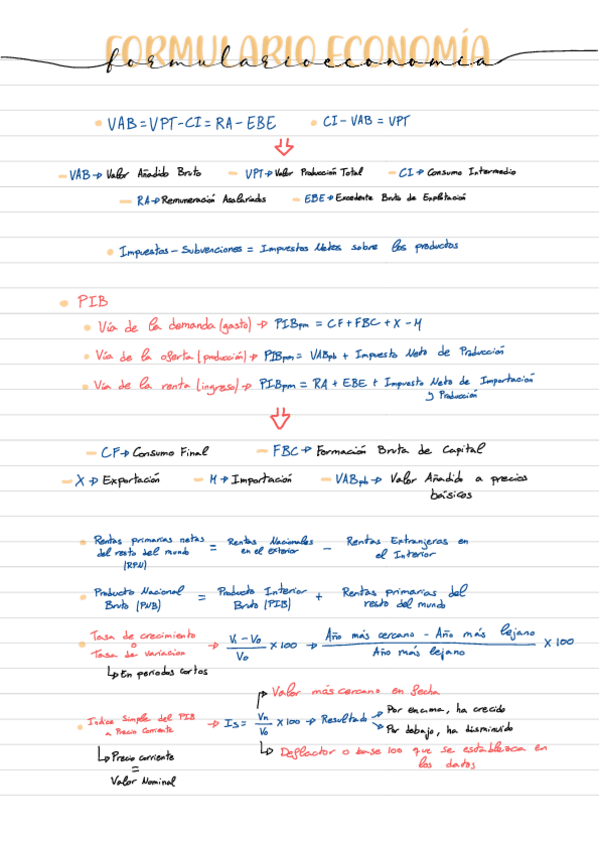 FORMULARIO ECONOMÍA
formularioeconomía
VAB = VPT - CI = RA - EBE
CI - VAB = VPT
VAB → Valor Añadido Bruto
VPT → Valor Producción Total
CI → Consumo Intermedio
RA → Remuneración Asalariados
EBE → Excedente Bruto de Explotación
Impuestos - Subvenciones = Impuestos Netos sobre los productos
PIB
Vía de la demanda (gasto) → PIBpm = CF + FBC + X - M
Vía de la oferta (producción) → PIBpm = VABpb + Impuesto Neto de Producción
Vía de la renta (ingreso) → PIBpm = RA + EBE + Impuesto Neto de Importación
y Producción
CF → Consumo Final
FBC → Formación Bruta de Capital
X → Exportación
M → Importación
VABpb → Valor Añadido a precios
básicos
Rentas primarias netas
del resto del mundo
(RPN)
=
Rentas Nacionales
en el exterior
-
Rentas Extranjeras en
el Interior
Producto Nacional
Bruto (PNB)
=
Producto Interior
Bruto (PIB)
+
Rentas primarias del
resto del mundo
Tasa de crecimiento
o
Tasa de variacion
→
V₁ - V₀
V₀
x 100 →
Año más cercano - Año más lejano
Año más lejano
x 100
↳ En períodos cortos
Valor más cercano en fecha
Índice Simple del PIB
a Precio Corriente
→ Is =
Vn
V₀
x 100 → Resultado
Por encima, ha crecido
Por debajo, ha disminuido
↳ Deflactor o base 100 que se establezca en
los datos
↳ Precio corriente
=
Valor Nominal